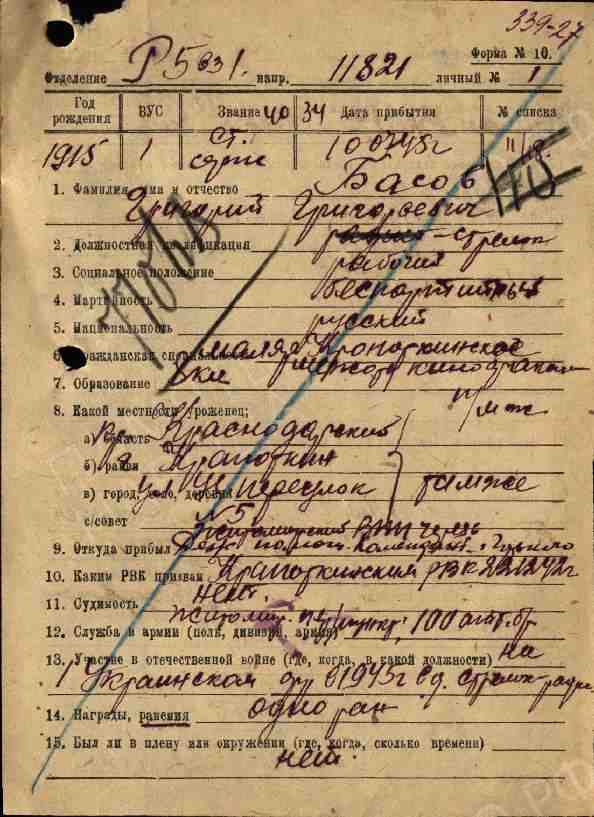 339-27
Форма № 10.
Отделение Р 5 631. напр. 11821 личный № 1
Год рождения ВУС Звание 40 34 Дата прибытия № списка
1915 1 Ст. серж 100745г 11/18.
1. Фамилия, имя и отчество Басов
Григорий Григорьевич
2. Должностная квалификация радист-стрелок
3. Социальное положение рабочий
4. Партийность беспартийный
5. Национальность русский
6. Гражданская специальность маляр Кропоткинское
7. Образование 3 кл
8. Какой местности уроженец; п/м ж
а) область Краснодарский
б) район Кропоткин
в) город, село, деревня переулок там же
с/совет № 5
9. Откуда прибыл
10. Каким РВК призван Кропоткинский РВК 221242г
11. Судимость нет.
12. Служба в армии (полк, дивизия, армия) 100
13. Участие в отечественной войне (где, когда, в какой должности) на
1 Украинском фр в 1943г
14. Награды, ранения одно ран
15. Был ли в плену или окружении (где, когда, сколько времени)
нет.